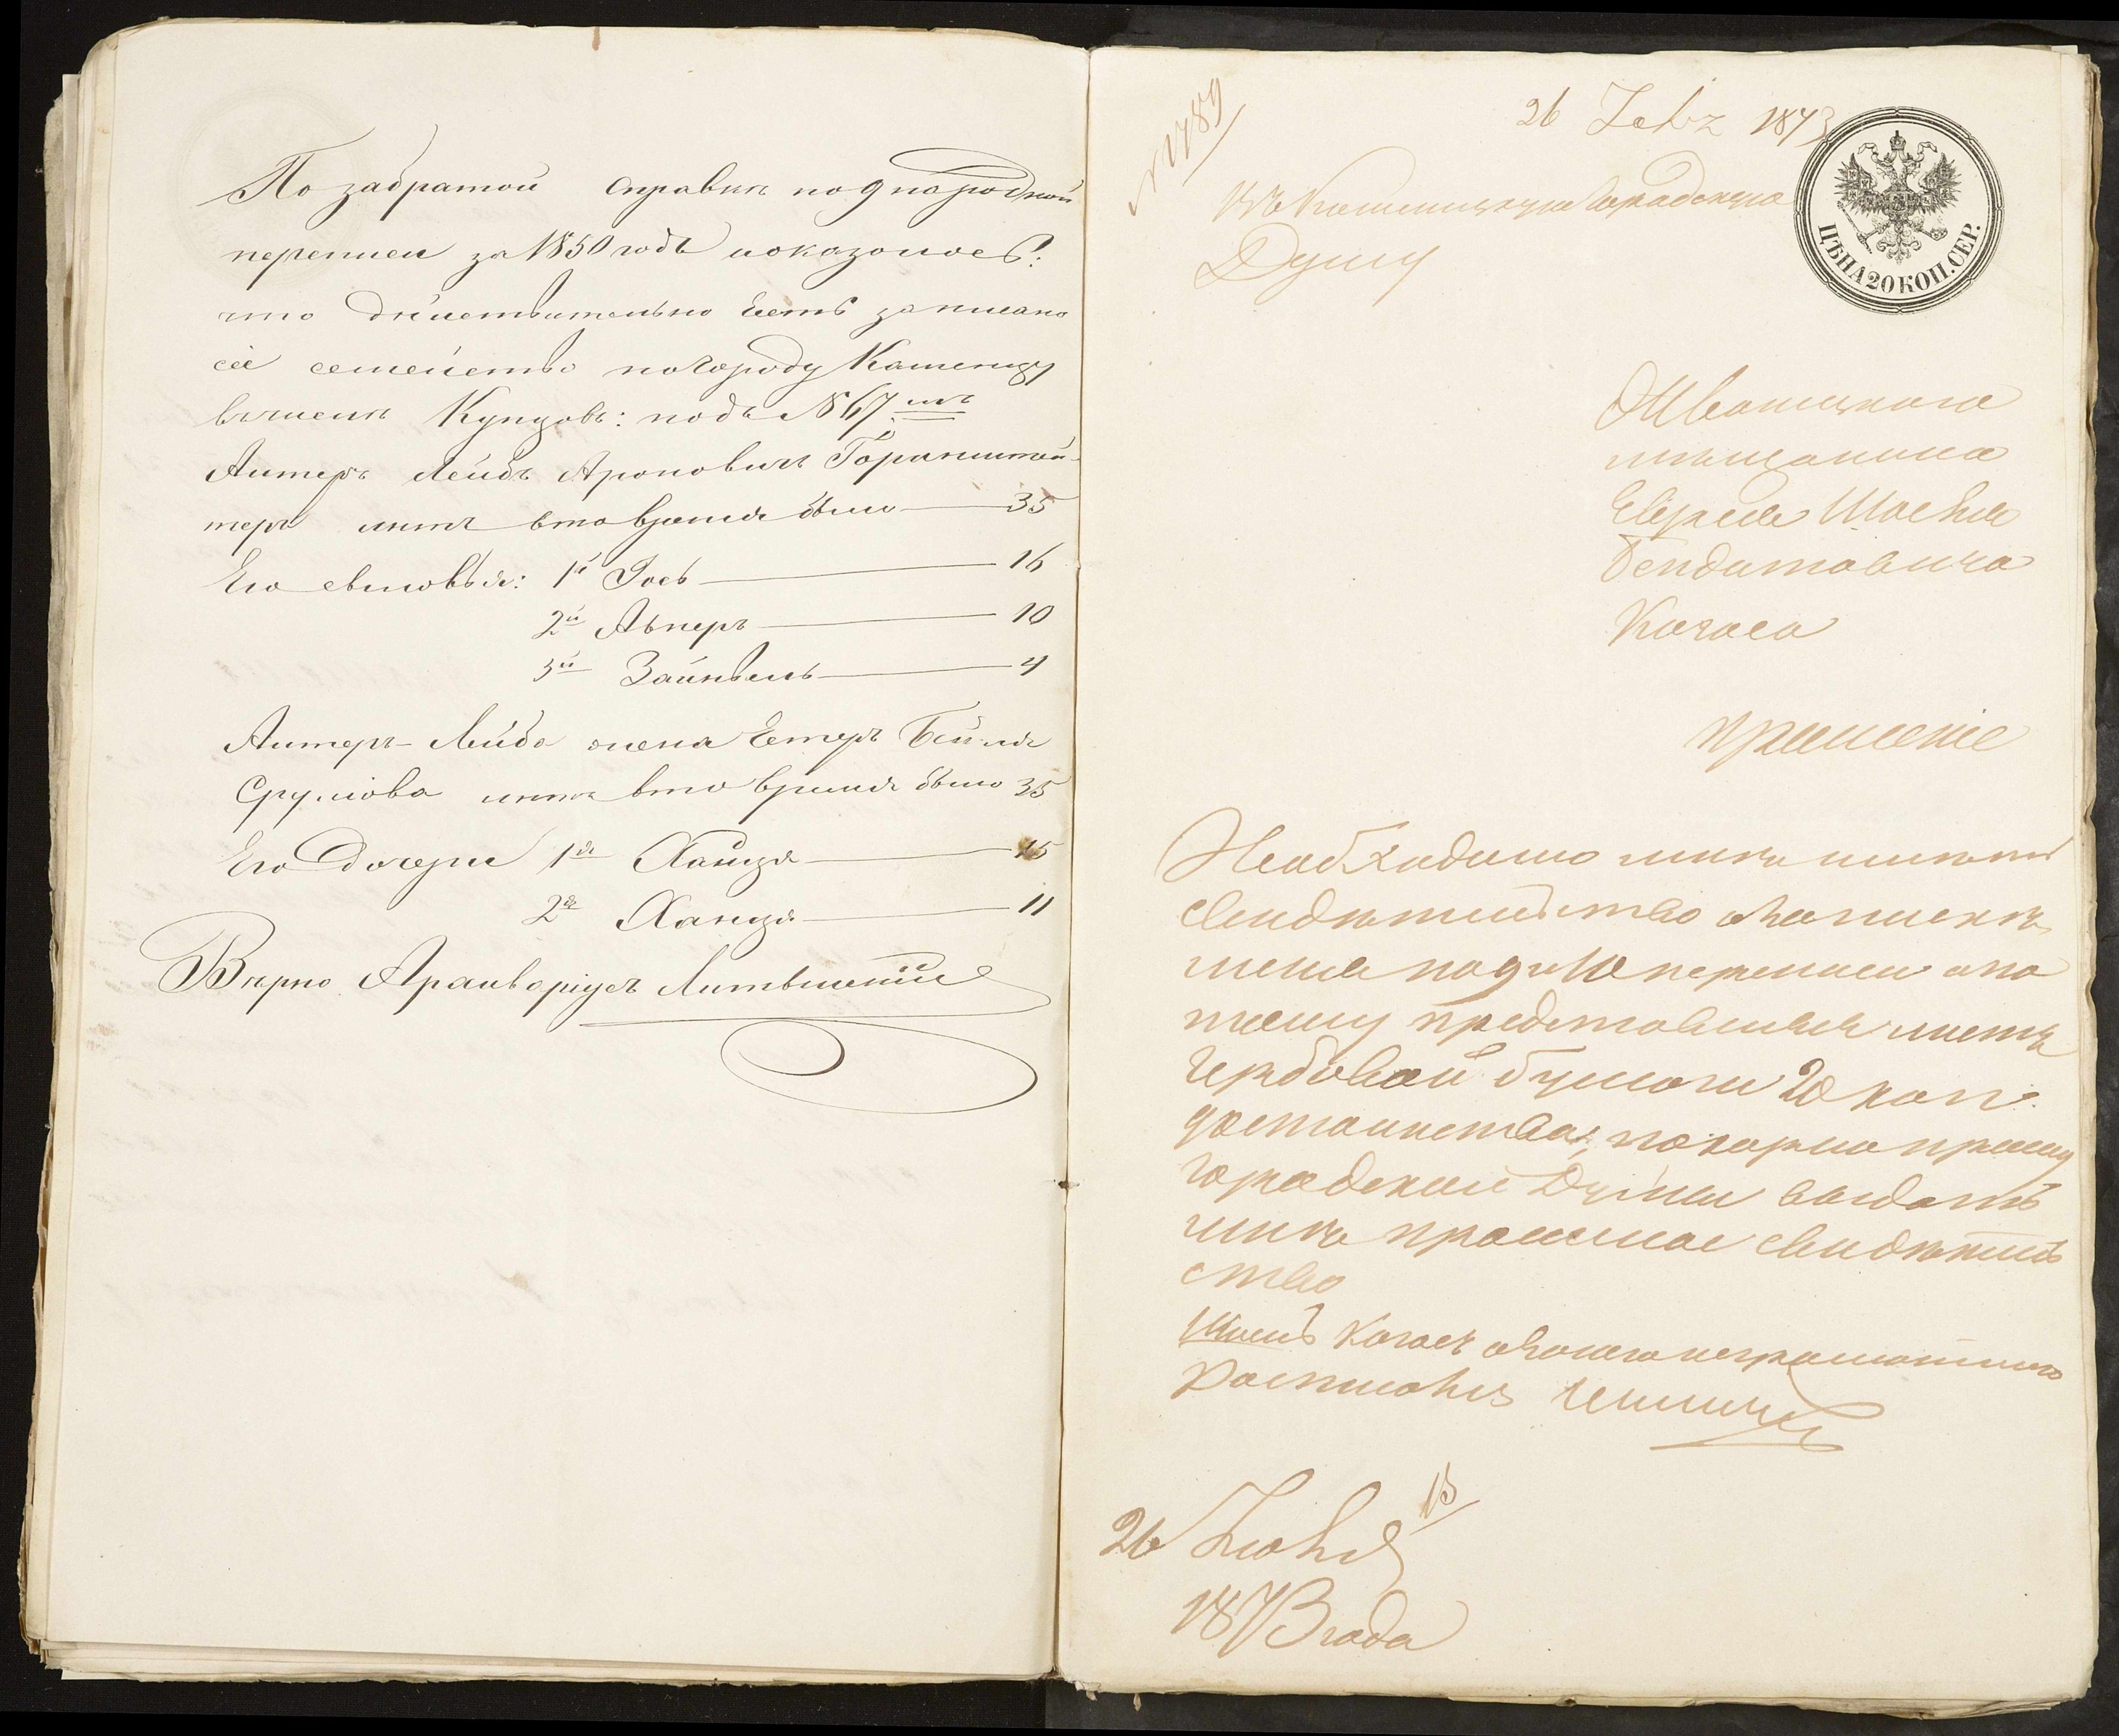 По забратой справки по 9 народной
переписи за 1850 годъ показалось:
что дѣйствительно есть записано
сіе семейство по городу Каменцу
въ числѣ Купцовъ: подъ № 67 мъ
Аитеръ Лейбъ Ароновичъ Горинштей-
теръ лѣтъ в то время было — 35
Его сыновья: 1й Іось — 16
2й Авнеръ — 10
3й Зайнвель — 4
Аитеръ-Лейба жена Естеръ Бейля
Срулiова лѣтъ в то время было 35
Его дочери 1я Хайця — 15
2я Ханця — 11
Вѣрно Архиваріусъ
№ 1789
26 1873
Въ Каменецкую Городскую
Думу
ЦѢНА 20 КОП. СЕР.
Жванецкаго
мѣщанина
Еврея
Бендитовича
Когоса
прошеніе
Необходимо мнѣ имѣть
свидѣтельство о записки
меня по 9 и 10 переписи а по
тому представляя листъ
гербовой бумаги 20 коп.
достоинства, покорно прошу
городской Думы выдать
мнѣ просимое свидѣтель
ство
Когосъ а за него неграмотнаго
росписался
26
1873 года